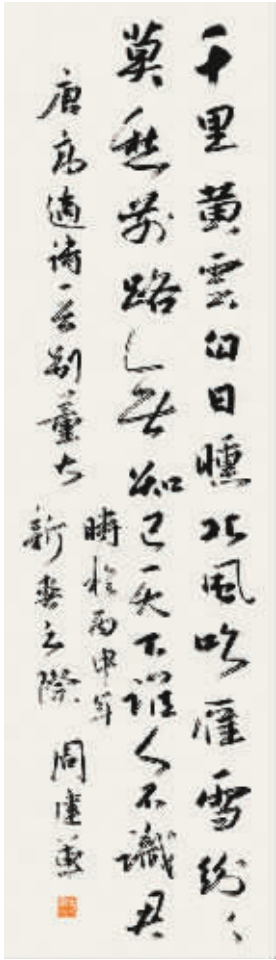 千里黄雲白日曛北風吹雁雪紛々
莫愁前路無知己天下誰人不識君
唐高適詩一首別董大
時於丙申年
新春之際
周